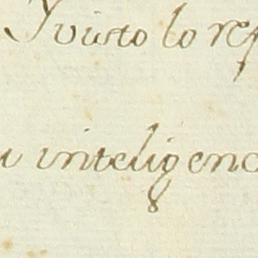 Y visto lo ref
u inteligenc